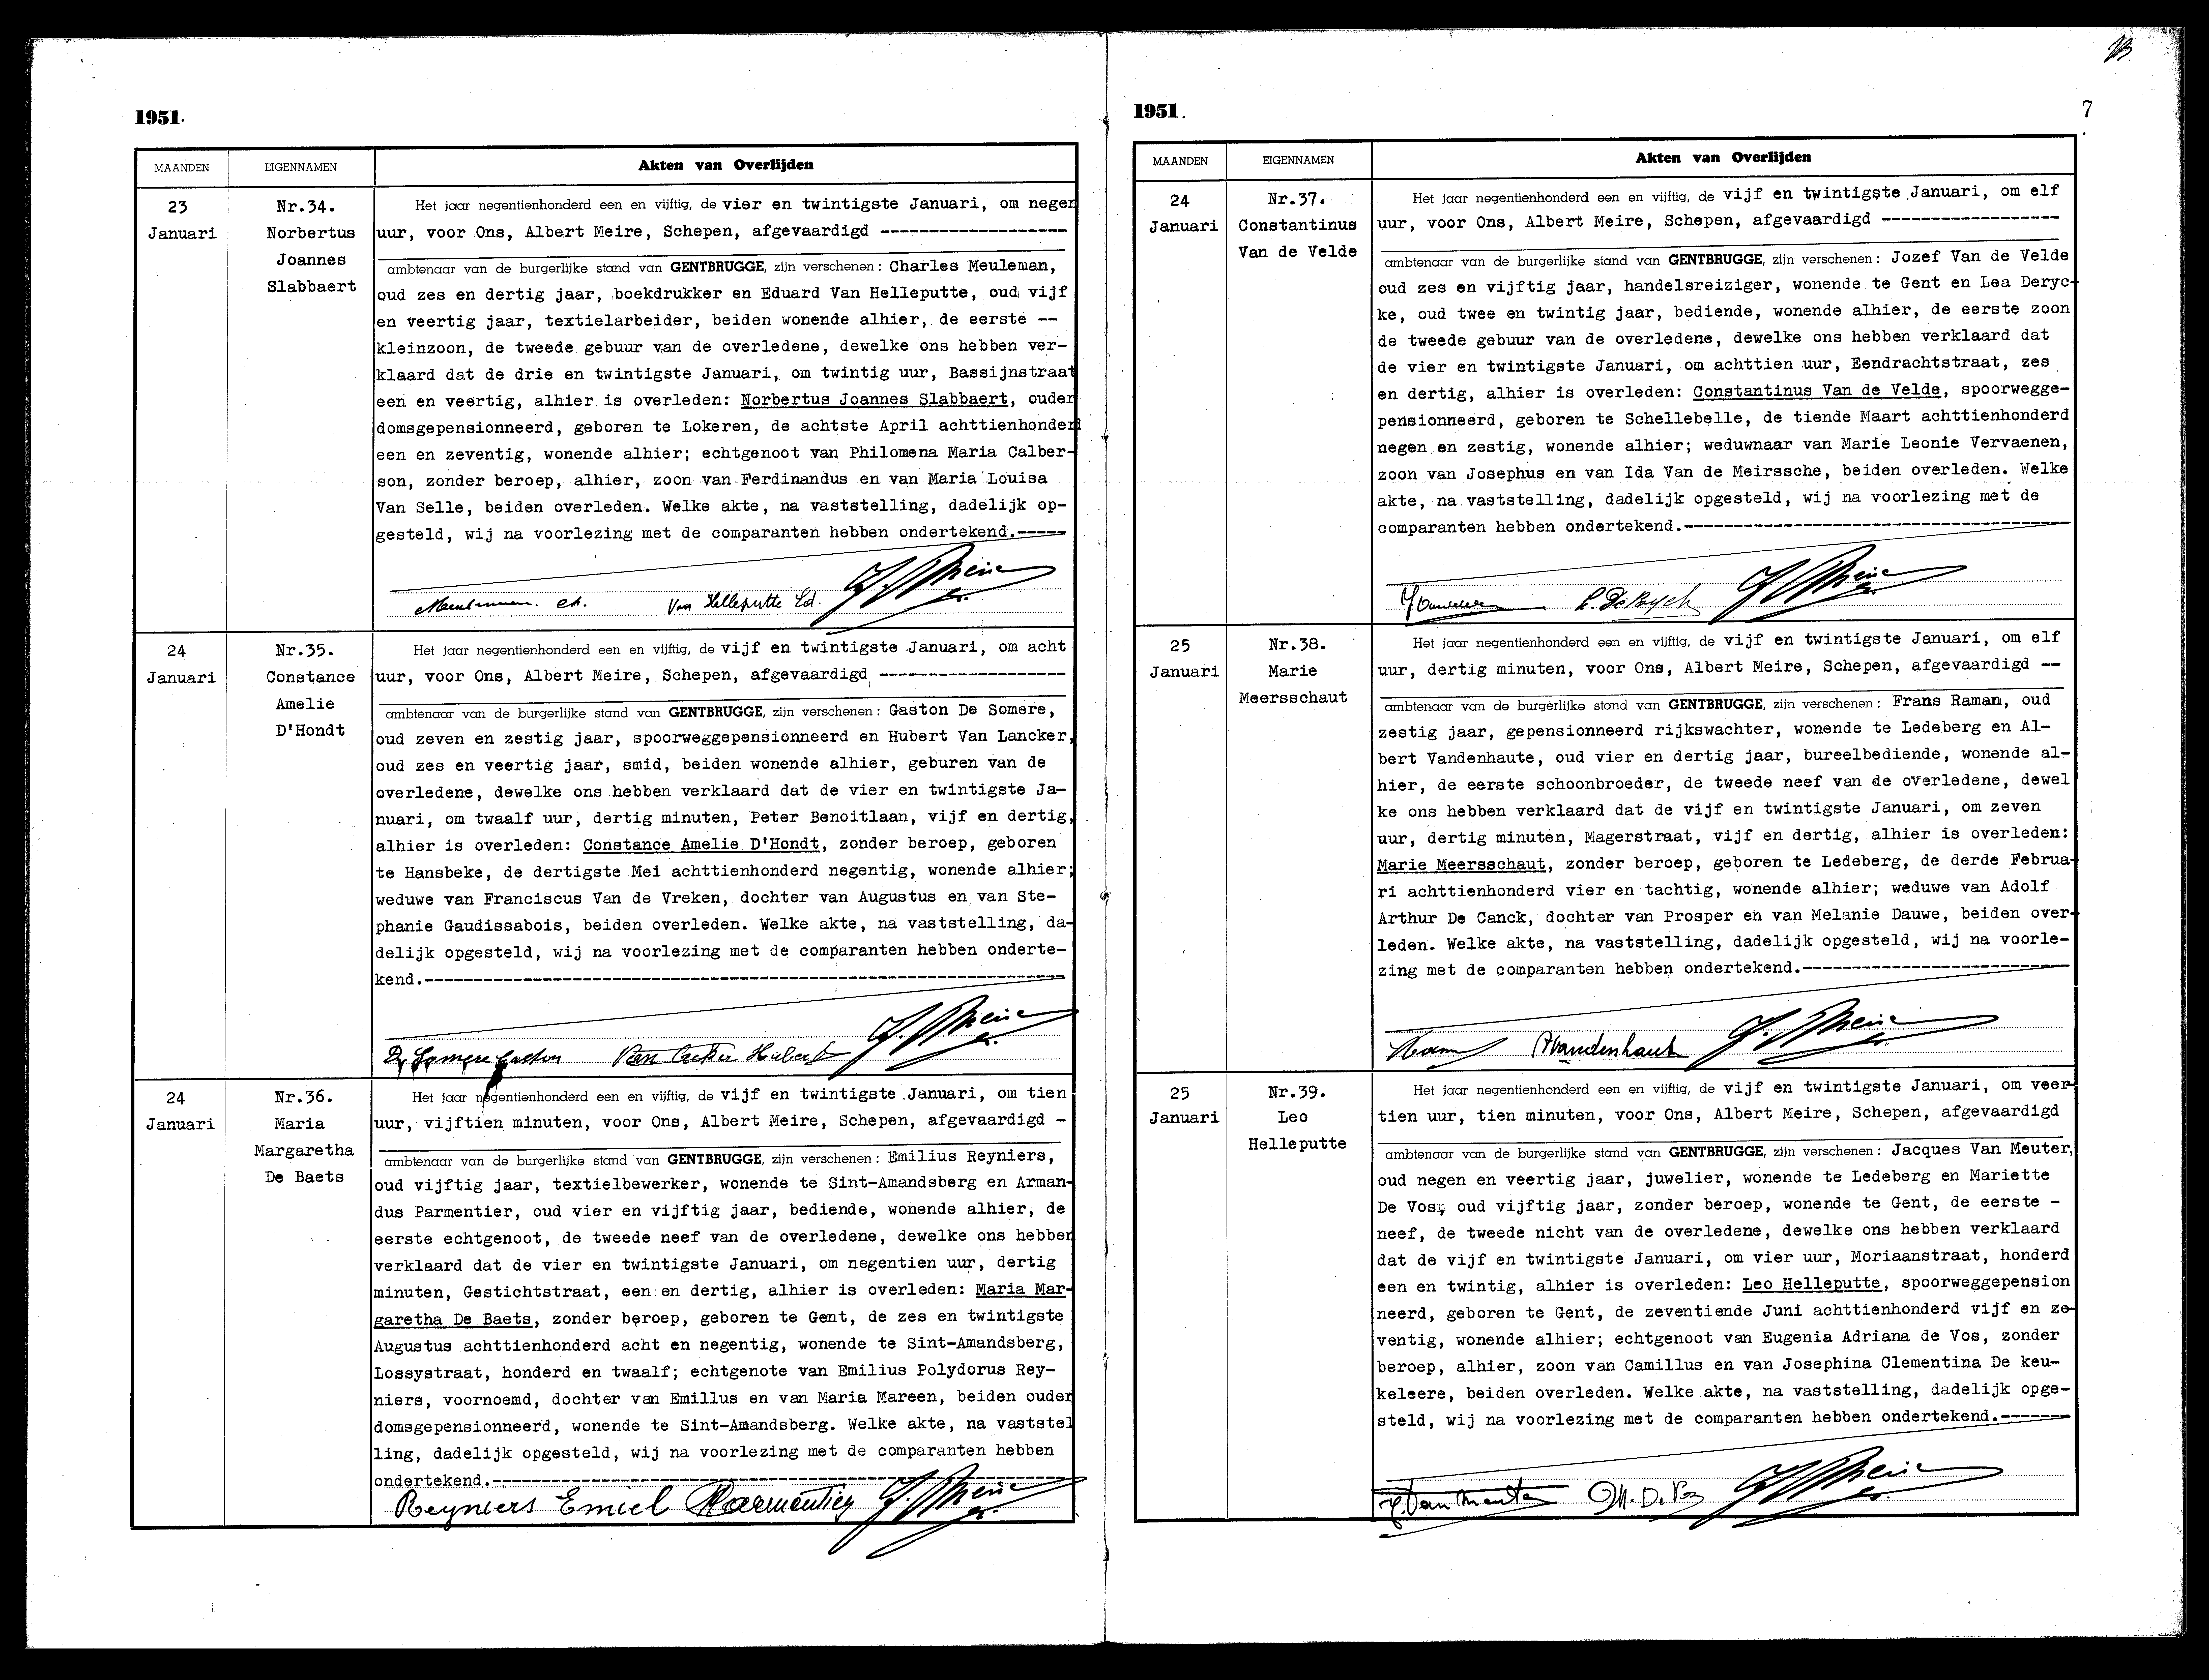 1951.
MAANDEN
EIGENNAMEN
Akten van Overlijden
23
Januari
Nr.34.
Norbertus
Joannes
Slabbaert
Het jaar negentienhonderd een en vijftig, de vier en twintigste Januari, om negen
uur, voor Ons, Albert Meire, Schepen, afgevaardigd -------------------
ambtenaar van de burgerlijke stand van GENTBRUGGE, zijn verschenen: Charles Meuleman,
oud zes en dertig jaar, boekdrukker en Eduard Van Helleputte, oud vijf
en veertig jaar, textielarbeider, beiden wonende alhier, de eerste --
kleinzoon, de tweede gebuur van de overledene, dewelke ons hebben ver-
klaard dat de drie en twintigste Januari, om twintig uur, Bassijnstraat
een en veertig, alhier is overleden: Norbertus Joannes Slabbaert, ouder
domsgepensionneerd, geboren te Lokeren, de achtste April achttienhonderd
een en zeventig, wonende alhier; echtgenoot van Philomena Maria Calber-
son, zonder beroep, alhier, zoon van Ferdinandus en van Maria Louisa
Van Selle, beiden overleden. Welke akte, na vaststelling, dadelijk op-
gesteld, wij na voorlezing met de comparanten hebben ondertekend.-----
Meuleman. Ch. Van Helleputte Ed.
24
Januari
Nr.35.
Constance
Amelie
D'Hondt
Het jaar negentienhonderd een en vijftig, de vijf en twintigste Januari, om acht
uur, voor Ons, Albert Meire, Schepen, afgevaardigd -------------------
ambtenaar van de burgerlijke stand van GENTBRUGGE, zijn verschenen: Gaston De Somere,
oud zeven en zestig jaar, spoorweggepensionneerd en Hubert Van Lancker,
oud zes en veertig jaar, smid, beiden wonende alhier, geburen van de
overledene, dewelke ons hebben verklaard dat de vier en twintigste Ja-
nuari, om twaalf uur, dertig minuten, Peter Benoitlaan, vijf en dertig,
alhier is overleden: Constance Amelie D'Hondt, zonder beroep, geboren
te Hansbeke, de dertigste Mei achttienhonderd negentig, wonende alhier;
weduwe van Franciscus Van de Vreken, dochter van Augustus en van Ste-
phanie Gaudissabois, beiden overleden. Welke akte, na vaststelling, da-
delijk opgesteld, wij na voorlezing met de comparanten hebben onderte-
kend.---------------------------------------------------------------
De Somere Gaston Van Hubert
24
Januari
Nr.36.
Maria
Margaretha
De Baets
Het jaar negentienhonderd een en vijftig, de vijf en twintigste Januari, om tien
uur, vijftien minuten, voor Ons, Albert Meire, Schepen, afgevaardigd -
ambtenaar van de burgerlijke stand van GENTBRUGGE, zijn verschenen: Emilius Reyniers,
oud vijftig jaar, textielbewerker, wonende te Sint-Amandsberg en Arman-
dus Parmentier, oud vier en vijftig jaar, bediende, wonende alhier, de
eerste echtgenoot, de tweede neef van de overledene, dewelke ons hebben
verklaard dat de vier en twintigste Januari, om negentien uur, dertig
minuten, Gestichtstraat, een en dertig, alhier is overleden: Maria Mar-
garetha De Baets, zonder beroep, geboren te Gent, de zes en twintigste
Augustus achttienhonderd acht en negentig, wonende te Sint-Amandsberg,
Lossystraat, honderd en twaalf; echtgenote van Emilius Polydorus Rey-
niers, voornoemd, dochter van Emillus en van Maria Mareen, beiden ouder
domsgepensionneerd, wonende te Sint-Amandsberg. Welke akte, na vaststel
ling, dadelijk opgesteld, wij na voorlezing met de comparanten hebben
ondertekend.--------------------------------------------------------
Reyniers Emiel Parmentier
1951.
7
MAANDEN
EIGENNAMEN
Akten van Overlijden
24
Januari
Nr.37.
Constantinus
Van de Velde
Het jaar negentienhonderd een en vijftig, de vijf en twintigste Januari, om elf
uur, voor Ons, Albert Meire, Schepen, afgevaardigd ------------------
ambtenaar van de burgerlijke stand van GENTBRUGGE, zijn verschenen: Jozef Van de Velde
oud zes en vijftig jaar, handelsreiziger, wonende te Gent en Lea Deryc-
ke, oud twee en twintig jaar, bediende, wonende alhier, de eerste zoon
de tweede gebuur van de overledene, dewelke ons hebben verklaard dat
de vier en twintigste Januari, om achttien uur, Eendrachtstraat, zes
en dertig, alhier is overleden: Constantinus Van de Velde, spoorwegge-
pensionneerd, geboren te Schellebelle, de tiende Maart achttienhonderd
negen en zestig, wonende alhier; weduwnaar van Marie Leonie Vervaenen,
zoon van Josephus en van Ida Van de Meirssche, beiden overleden. Welke
akte, na vaststelling, dadelijk opgesteld, wij na voorlezing met de
comparanten hebben ondertekend.--------------------------------------
25
Januari
Nr.38.
Marie
Meersschaut
Het jaar negentienhonderd een en vijftig, de vijf en twintigste Januari, om elf
uur, dertig minuten, voor Ons, Albert Meire, Schepen, afgevaardigd --
ambtenaar van de burgerlijke stand van GENTBRUGGE, zijn verschenen: Frans Raman, oud
zestig jaar, gepensionneerd rijkswachter, wonende te Ledeberg en Al-
bert Vandenhaute, oud vier en dertig jaar, bureelbediende, wonende al-
hier, de eerste schoonbroeder, de tweede neef van de overledene, dewel
ke ons hebben verklaard dat de vijf en twintigste Januari, om zeven
uur, dertig minuten, Magerstraat, vijf en dertig, alhier is overleden:
Marie Meersschaut, zonder beroep, geboren te Ledeberg, de derde Februa-
ri achttienhonderd vier en tachtig, wonende alhier; weduwe van Adolf
Arthur De Canck, dochter van Prosper en van Melanie Dauwe, beiden over-
leden. Welke akte, na vaststelling, dadelijk opgesteld, wij na voorle-
zing met de comparanten hebben ondertekend.--------------------------
AVandenhaute
25
Januari
Nr.39.
Leo
Helleputte
Het jaar negentienhonderd een en vijftig, de vijf en twintigste Januari, om veer-
tien uur, tien minuten, voor Ons, Albert Meire, Schepen, afgevaardigd
ambtenaar van de burgerlijke stand van GENTBRUGGE, zijn verschenen: Jacques Van Meuter,
oud negen en veertig jaar, juwelier, wonende te Ledeberg en Mariette
De Vos, oud vijftig jaar, zonder beroep, wonende te Gent, de eerste -
neef, de tweede nicht van de overledene, dewelke ons hebben verklaard
dat de vijf en twintigste Januari, om vier uur, Moriaanstraat, honderd
een en twintig, alhier is overleden: Leo Helleputte, spoorweggepension
neerd, geboren te Gent, de zeventiende Juni achttienhonderd vijf en ze-
ventig, wonende alhier; echtgenoot van Eugenia Adriana de Vos, zonder
beroep, alhier, zoon van Camillus en van Josephina Clementina De keu-
keleere, beiden overleden. Welke akte, na vaststelling, dadelijk opge-
steld, wij na voorlezing met de comparanten hebben ondertekend.-------
J. Van Meuter M. De Vos